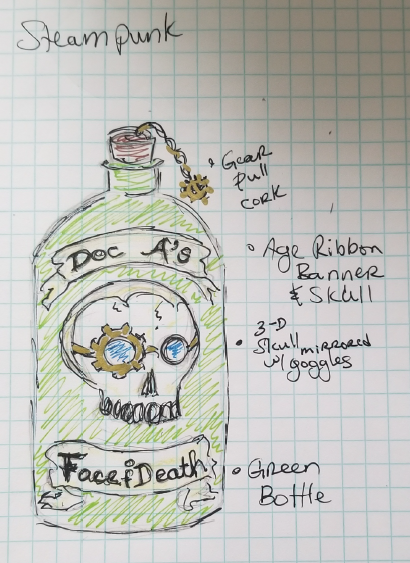 Steampunk
• Gear
Pull
cork
Doc A's
• Age Ribbon
Banner
& Skull
• 3-D
Skull mirrored
w/ goggles
Face of Death
• Green
Bottle